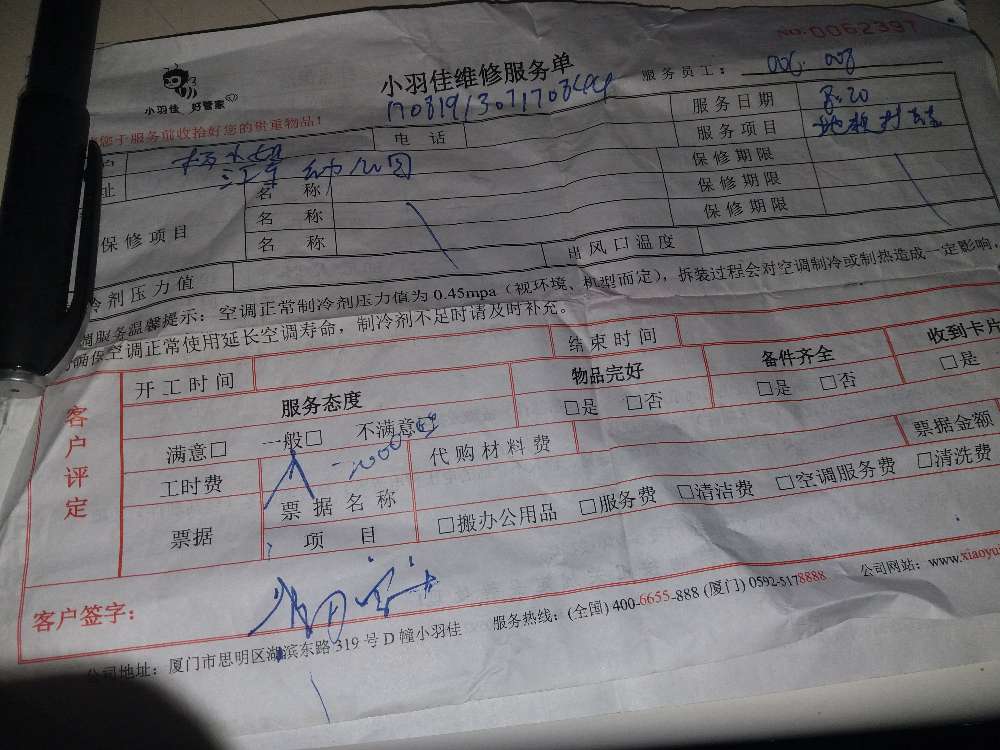 NO:0062397
小羽佳 好管家
小羽佳维修服务单
服务员工: 006. 008
您于服务前收拾好您的贵重物品!
电话
服务日期 8.20
服务项目
址
名称
保修期限
保修项目
名称
保修期限
名称
保修期限
冷剂压力值
出风口温度
调服务温馨提示:空调正常制冷剂压力值为0.45mpa(视环境、机型而定),拆装过程会对空调制冷或制热造成一定影响,
确保空调正常使用延长空调寿命,制冷剂不足时请及时补充。
客户评定
开工时间
结束时间
服务态度
物品完好
备件齐全
收到卡片
满意□ 一般□ 不满意□
□是 □否
□是 □否
□是
工时费
代购材料费
票据金额
票据
票据名称
□搬办公用品 □服务费 □清洁费 □空调服务费 □清洗费
项目
客户签字:
公司地址:厦门市思明区湖滨东路319号D幢小羽佳 服务热线:(全国)400-6655-888(厦门)0592-5178888 公司网站:www.xiaoyu